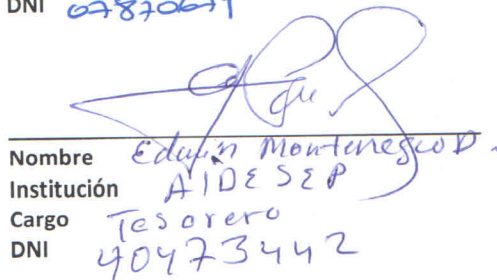 DNI 07870679
Nombre Edwin Montenegro D.
Institución AIDESEP
Cargo Tesorero
DNI 40473442